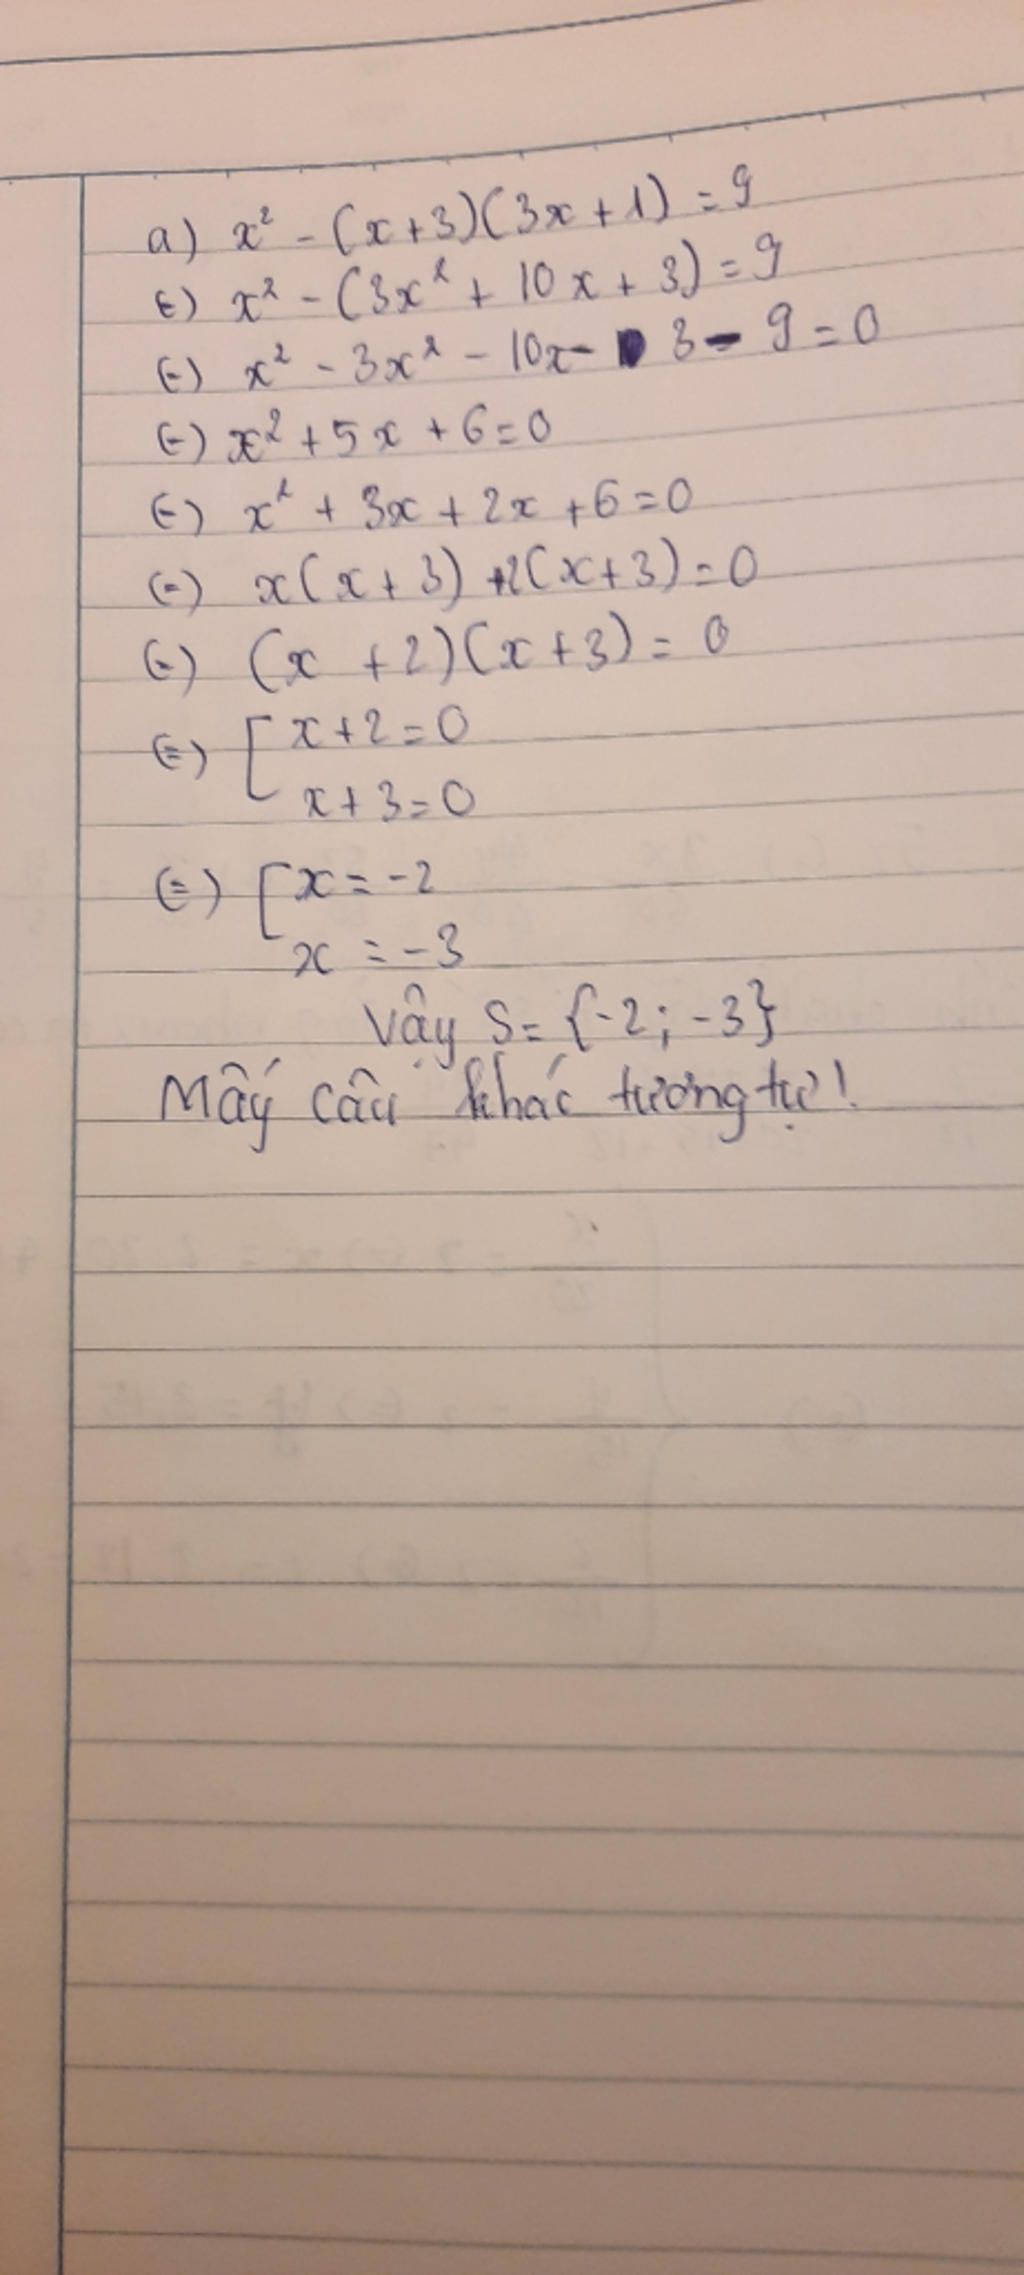 a) x² - (x+3)(3x+1) = 9
(=) x² - (3x² + 10x + 3) = 9
(=) x² - 3x² - 10x - 3 - 9 = 0
(=) x² + 5x + 6 = 0
(=) x² + 3x + 2x + 6 = 0
(=) x(x+3) + 2(x+3) = 0
(=) (x + 2)(x+3) = 0
(=) [ x+2 = 0
x+3 = 0
(=) [ x = -2
x = -3
Vậy S = {-2; -3}
Mấy câu khác tương tự!